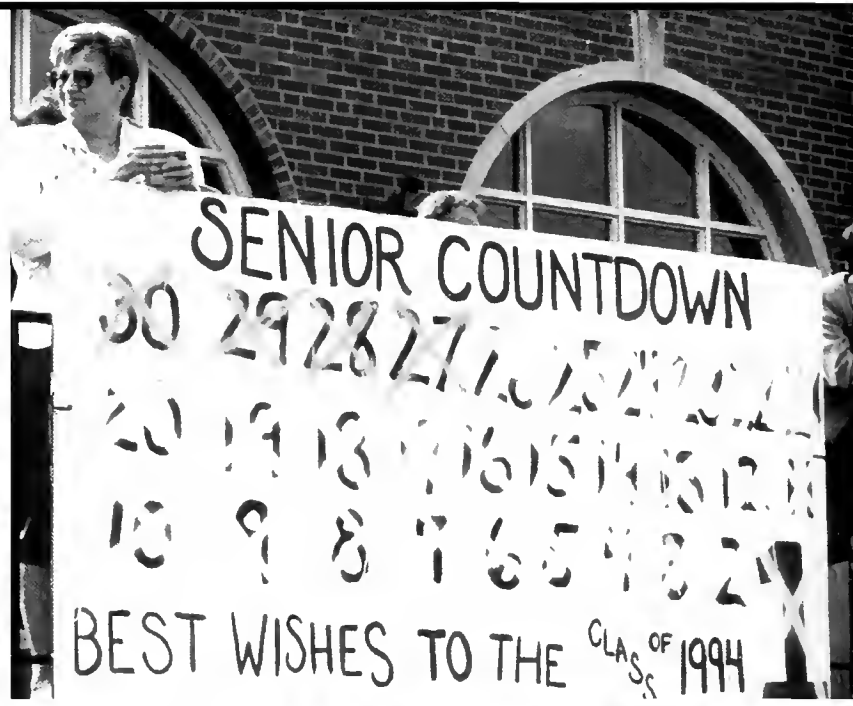 SENIOR COUNTDOWN
30 29 28 27 26 25 24 23 22 21
20 19 18 17 16 15 14 13 12 11
10 9 8 7 6 5 4 3 2 1
BEST WISHES TO THE CLASS OF 1994